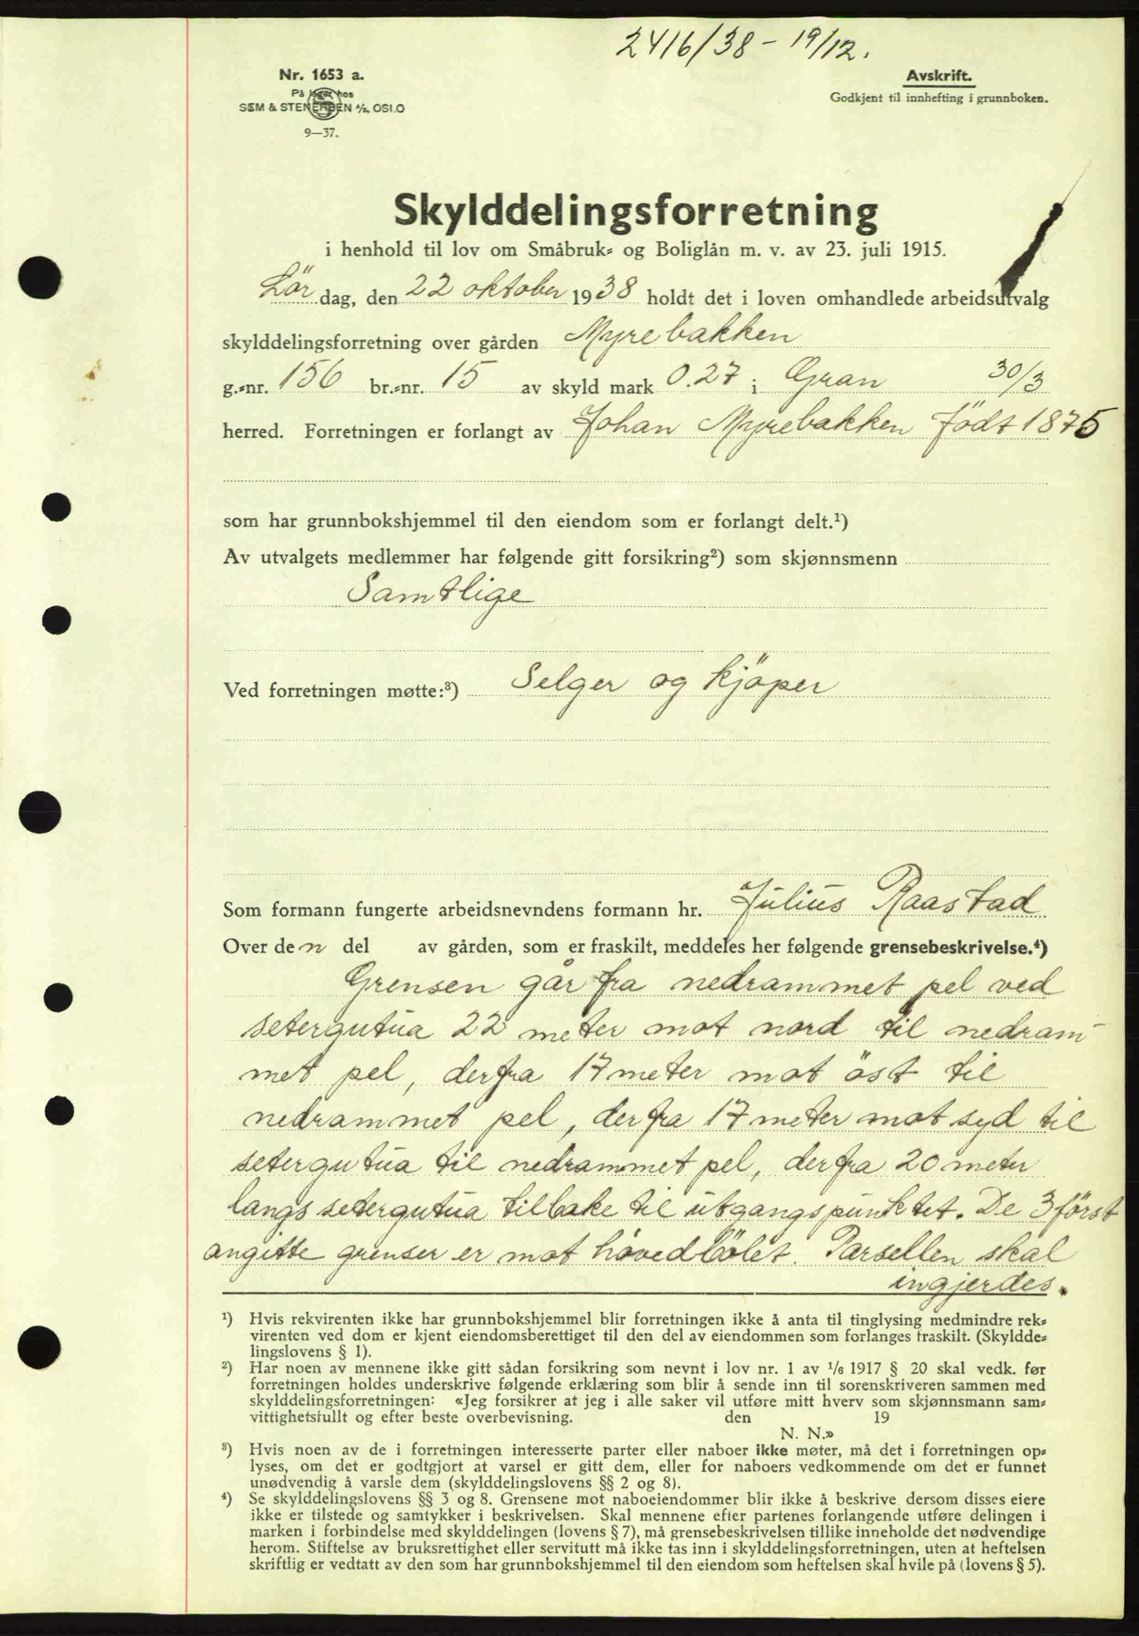 2416/38 - 19/12.
Nr. 1653 a.
På lager hos
SEM & STENERSEN A/S, OSLO
9—37.
Avskrift.
Godkjent til innhefting i grunnboken.
Skylddelingsforretning
i henhold til lov om Småbruk- og Boliglån m. v. av 23. juli 1915.
Lör dag, den 22 oktober 1938 holdt det i loven omhandlede arbeidsutvalg
skylddelingsforretning over gården Myrebakken
g.-nr. 156 br.-nr. 15 av skyld mark 0.27 i Gran 30/3
herred. Forretningen er forlangt av Johan Myrebakken födt 1875
som har grunnbokshjemmel til den eiendom som er forlangt delt.¹)
Av utvalgets medlemmer har følgende gitt forsikring²) som skjønnsmenn
Samtlige
Ved forretningen møtte:³) Selger og kjöper
Som formann fungerte arbeidsnevndens formann hr. Julius Raastad
Over den del av gården, som er fraskilt, meddeles her følgende grensebeskrivelse.⁴)
Grensen går fra nedrammet pel ved
setergutua 22 meter mot nord til nedram-
met pel, derfra 17 meter mot öst til
nedrammet pel, derfra 17 meter mot syd til
setergutua til nedrammet pel, derfra 20 meter
langs setergutua tilbake til utgangspunktet. De 3 först
angitte grenser er mot hovedbölet. Parsellen skal
ingjerdes.
¹) Hvis rekvirenten ikke har grunnbokshjemmel blir forretningen ikke å anta til tinglysing medmindre rek-
virenten ved dom er kjent eiendomsberettiget til den del av eiendommen som forlanges fraskilt. (Skyldde-
lingslovens § 1).
²) Har noen av mennene ikke gitt sådan forsikring som nevnt i lov nr. 1 av 1/6 1917 § 20 skal vedk. før
forretningen holdes underskrive følgende erklæring som blir å sende inn til sorenskriveren sammen med
skylddelingsforretningen: «Jeg forsikrer at jeg i alle saker vil utføre mitt hverv som skjønnsmann sam-
vittighetsfullt og efter beste overbevisning. den 19
N. N.»
³) Hvis noen av de i forretningen interesserte parter eller naboer ikke møter, må det i forretningen op-
lyses, om det er godtgjort at varsel er gitt dem, eller for naboers vedkommende om det er funnet
unødvendig å varsle dem (skylddelingslovens §§ 2 og 8).
⁴) Se skylddelingslovens §§ 3 og 8. Grensene mot naboeiendommer blir ikke å beskrive dersom disses eiere
ikke er tilstede og samtykker i beskrivelsen. Skal mennene efter partenes forlangende utføre delingen i
marken i forbindelse med skylddelingen (lovens § 7), må grensebeskrivelsen tillike inneholde det nødvendige
herom. Stiftelse av bruksrettighet eller servitutt må ikke tas inn i skylddelingsforretningen, uten at heftelsen
skriftlig er vedtatt av den som har grunnbokshjemmel til den eiendom som heftelsen skal hvile på (lovens § 5).